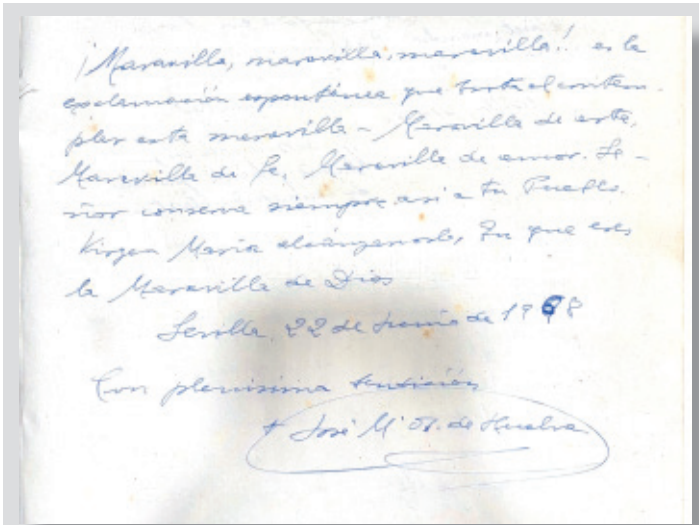 ¡Maravilla, maravilla, maravilla! es la
exclamación espontánea que brota al contem-
plar esta maravilla - Maravilla de arte,
Maravilla de fe, Maravilla de amor. Se-
ñor conserva siempre así a tu Pueblo.
Virgen María alcánzanoslo, Tu que eres
la Maravilla de Dios
Sevilla, 22 de Junio de 1968
Con plenísima bendición
+ José Mª Ob. de Huelva